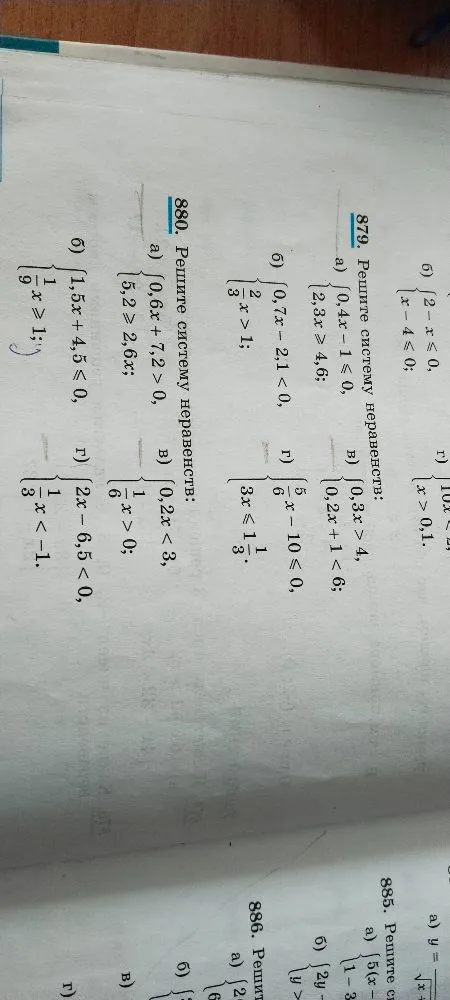 б) { 2 − x ⩽ 0,
x − 4 ⩽ 0;
г) { 10x < 2,
x > 0,1.
879. Решите систему неравенств:
а) { 0,4x − 1 ⩽ 0,
2,3x ⩾ 4,6;
в) { 0,3x > 4,
0,2x + 1 < 6;
б) { 0,7x − 2,1 < 0,
2/3 x > 1;
г) { 5/6 x − 10 ⩽ 0,
3x ⩽ 1 1/3.
880. Решите систему неравенств:
а) { 0,6x + 7,2 > 0,
5,2 ⩾ 2,6x;
в) { 0,2x < 3,
1/6 x > 0;
б) { 1,5x + 4,5 ⩽ 0,
1/9 x ⩾ 1;
г) { 2x − 6,5 < 0,
1/3 x < −1.
а) y =
885. Решите
а) { 5(x −
1 − 3
б) { 2y −
y >
886.
а) { 2
6
б) {
в)
г)